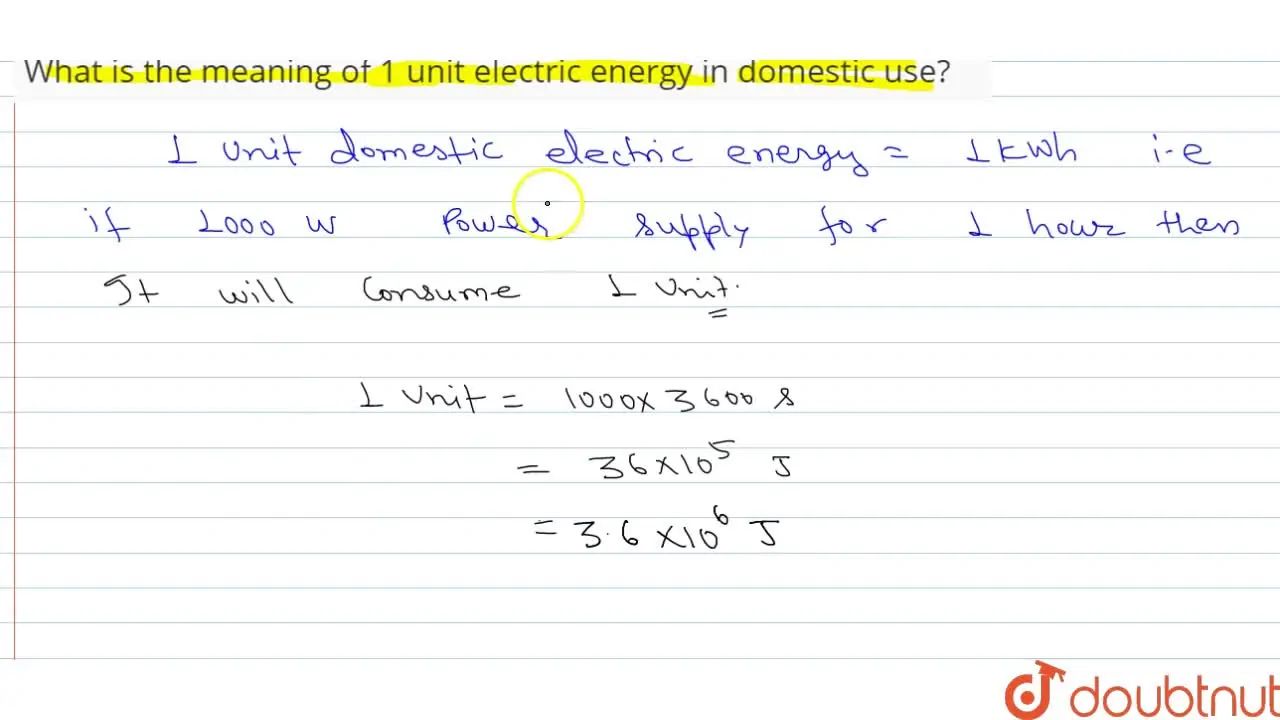 What is the meaning of 1 unit electric energy in domestic use?
1 unit domestic electric energy = 1 KWh i.e
if 1000 W Power supply for 1 hour then
It will Consume 1 Unit.
1 Unit = 1000 x 3600 s
= 36 x 10⁵ J
= 3.6 x 10⁶ J
doubtnut